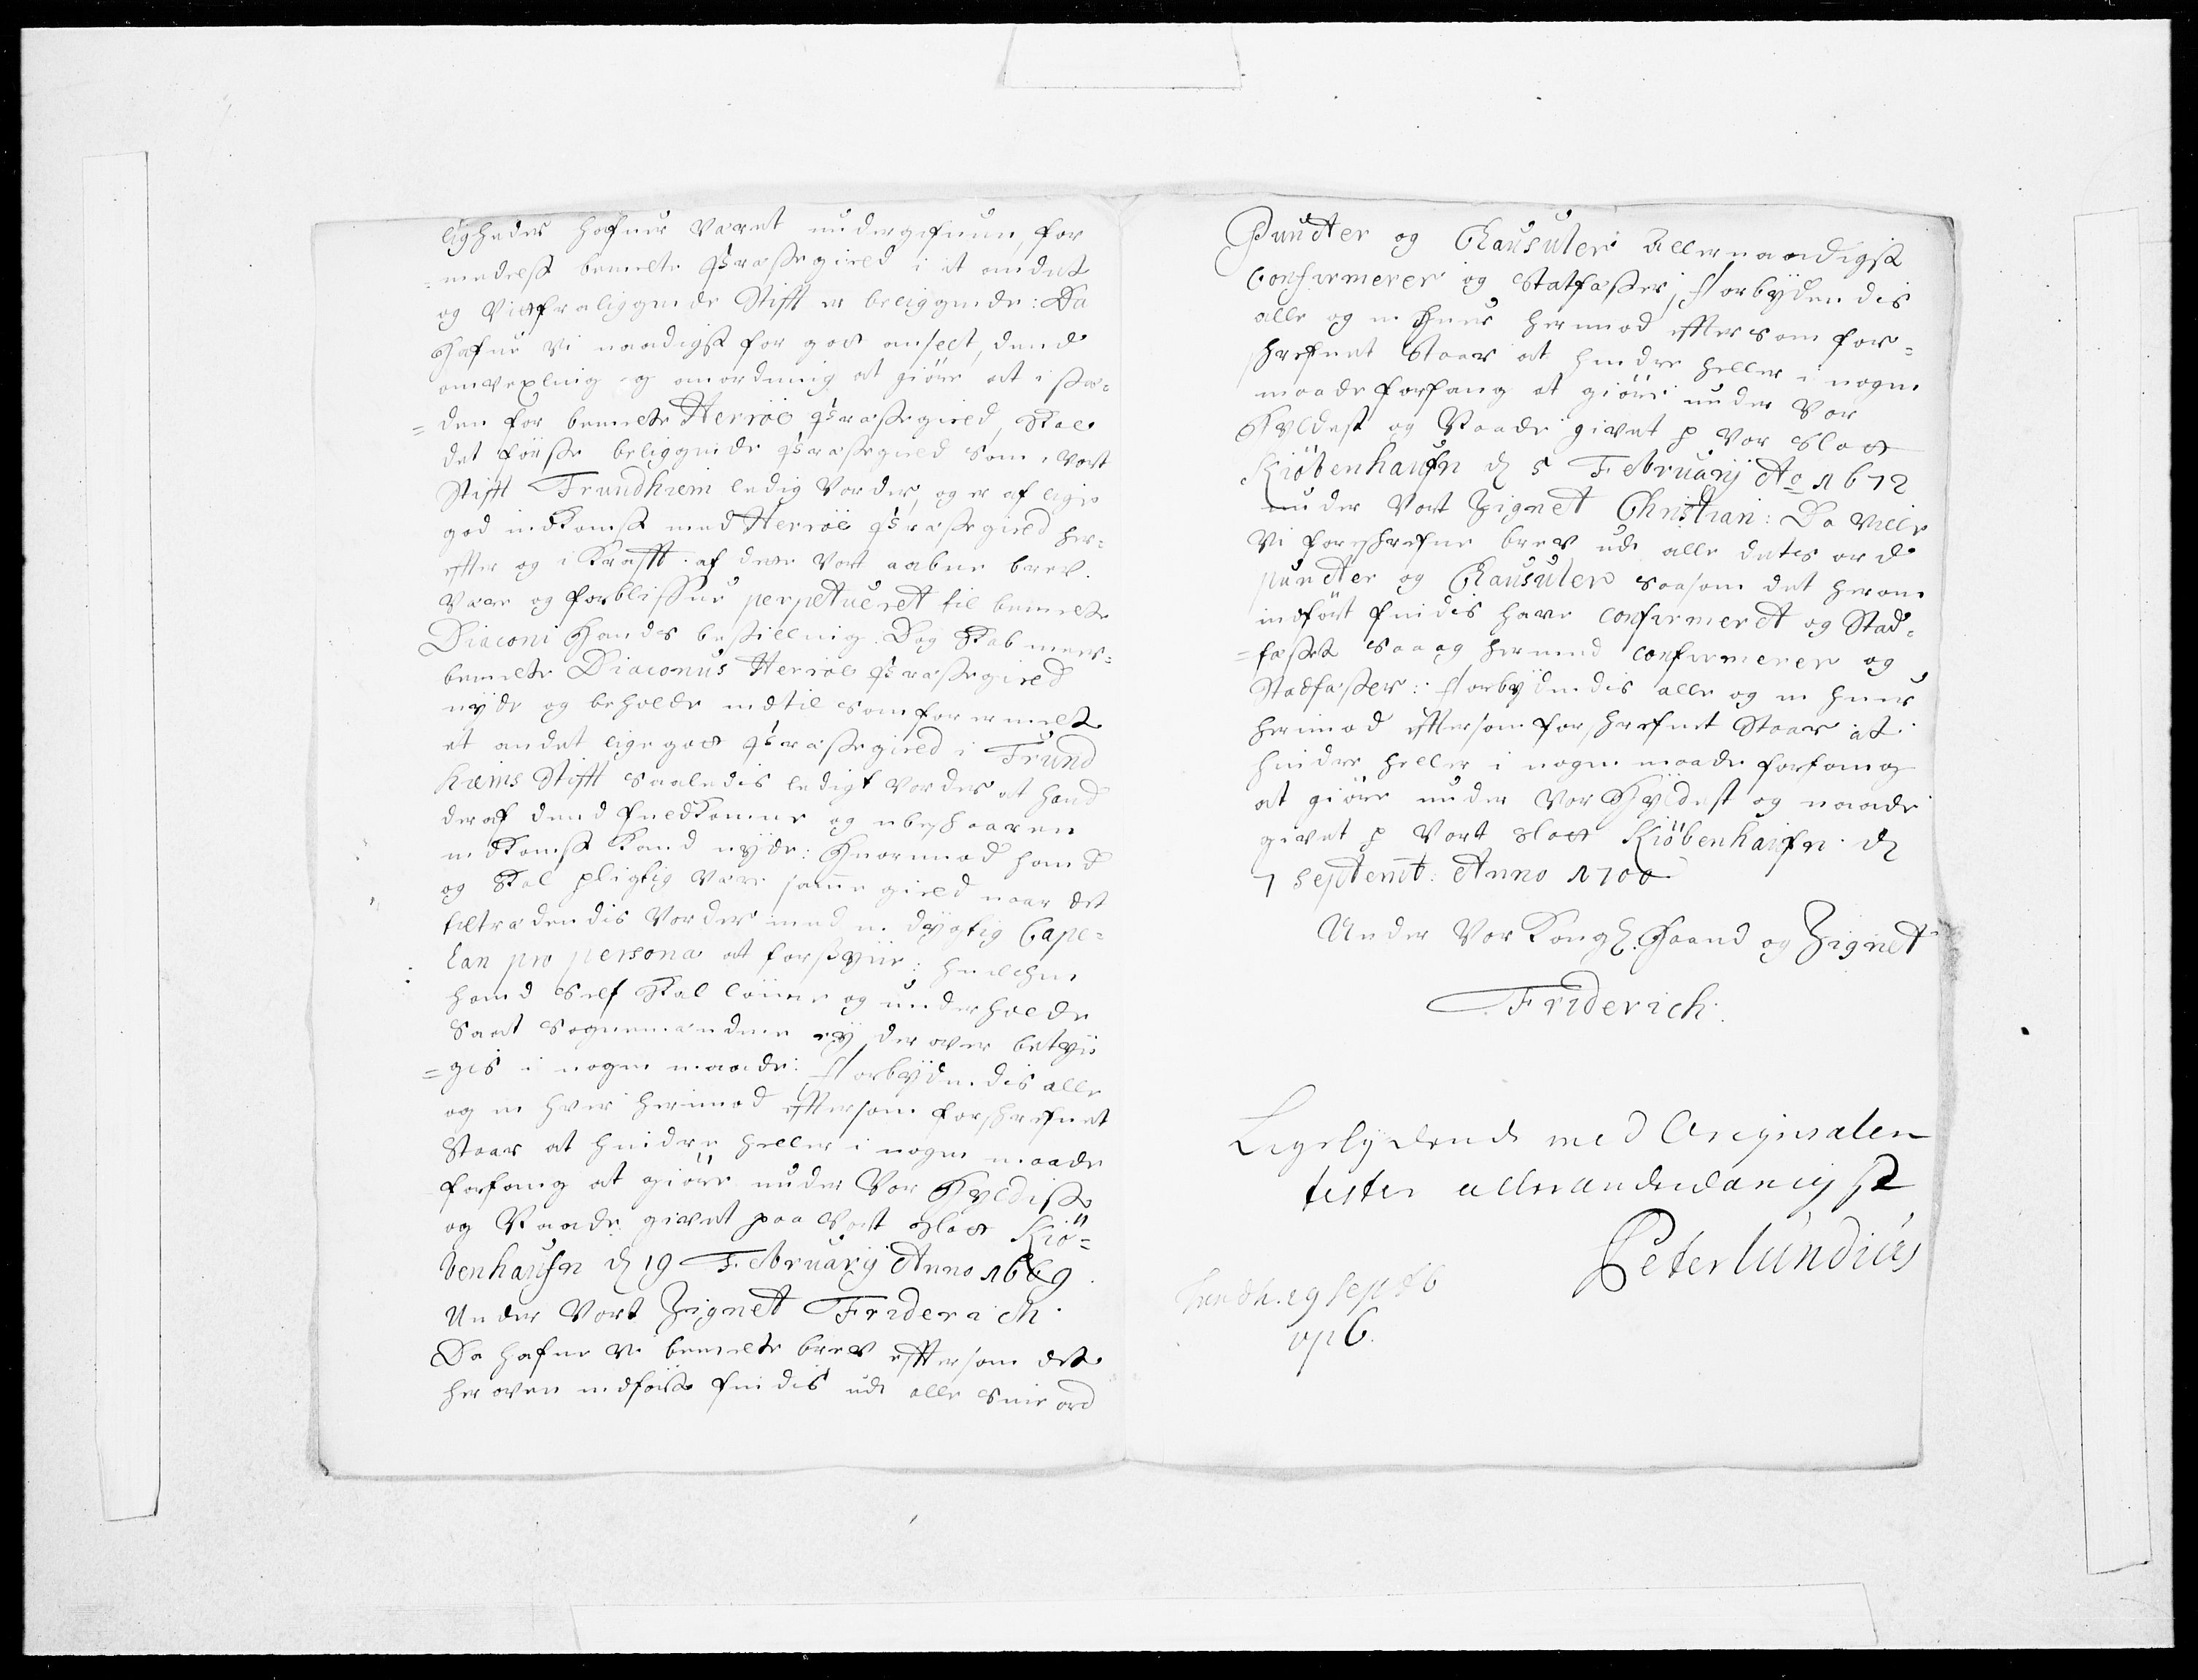 ligheder hafver været undergifuen, for
=medelst bemelte Præstegield i it andet
og Vitfraliggende Stift er beliggende: Da
Hafue vi naadigst for got anseet, dend
omvexling og anordning at giöre at i stæ=
=den for bemelte Herröe Præstegield, skal
det första beliggende Præstegield som i vort
Stifft Trundhiem ledig vorder, og er af lige
god indkomst med Herröe Præstegield her=
effter og i Krafft af dette vort aabne brev.
være og forblifue perpetueret til bemelte
Diaconi Hands bestilling. Dog skal meer=
bemelte Diaconus Herröe Præstegield
nyde og beholde indtil som for er melt
et andet lige got Præstegield i Trund
hiems Stifft saaledis ledigt vorder at hand
deraf dend fuldkomne og ubeskaaren
indkomst kand nyde: Huorimod hand
og skal pligtig være samme gield naar det
tiltrædendis vorder med en dygtig Cape=
lan pro persona at forstyre: huilchen
hand self skal lönne og underholde
saat sognemændene ey der over betyn
=gis i nogen maade: Forbydendis alle
og en hver herimod eftersom forschrefuet
staar at hindre heller i nogen maade
forfang at giöre under Vor Hyldiste
og Naade givet paa Vort Slot Kiö=
benhaufn d 19 Februarij Anno 1669.
Under Vort Zignet Friderich.
Da hafue vi bemelte brev eftersom det
her oven indfört findis udi alle sine ord
Puncter og Clausuler allernaadigst
Confirmerer og statfæster, Forbydendis
alle og en huer herimod eftersom for=
schrefuet staar at hindre heller i nogen
maade forfang at giöre under Vor
Hyldest og Naade givet p Vor Slot
Kiöbenhaufn d 5 Februarij Ao 1672
under Vort Zignet Christian: Da ville
Vi forschrefne brev udi alle dets ord
puncter og Clausuler saasom det heroven
indfört findis have confirmeret og Stad=
=fæstet saa og hermed confirmerer og
Stadfæster: Forbydendis alle og en huer
herimod eftersom forschrefuet staar at
hindre heller i nogen maade forfang
at giöre under Vor Hyldest og naade
givet p Vort slot Kiöbenhaufn d
7 Septemb: Anno 1700
Under Vor Kongl. Haand og Zignet
Friderich.
Ligelydende med Originalen
tester allerunderdanigst
Peter Lundius
29 Sept